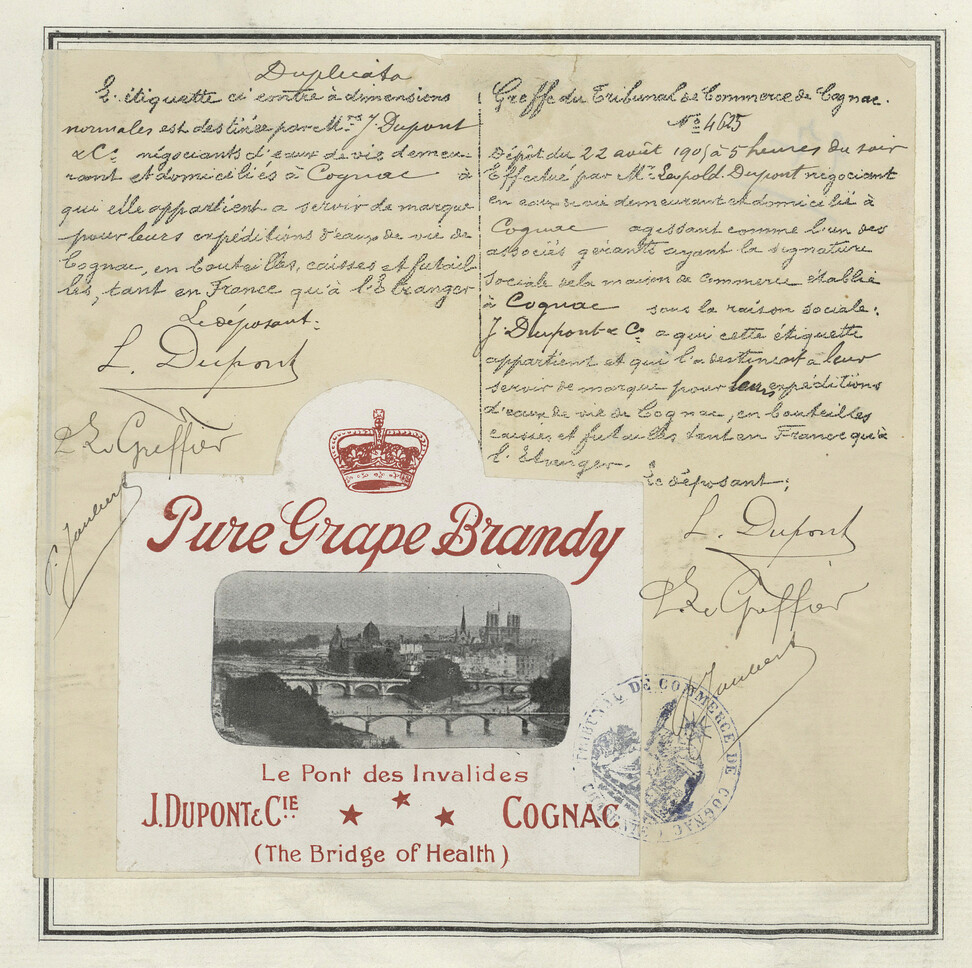 Duplicata
L'étiquette ci contre à dimensions
normales est destinée par Mrs J. Dupont
& Cie négociants d'eaux de vie demeu-
rant et domiciliés à Cognac à
qui elle appartient a servir de marque
pour leurs expéditions d'eaux de vie de
Cognac, en bouteilles, caisses et futail-
les, tant en France qu'à l'Etranger
Le déposant:
L. Dupont
Le Greffier
Greffe du Tribunal de Commerce de Cognac.
No 4625
Dépôt du 22 août 1905 à 5 heures du soir
Effectué par Mr Léopold Dupont négociant
en eaux de vie demeurant et domicilié à
Cognac agissant comme l'un des
associés gérants ayant la signature
sociale de la maison de commerce établie
à Cognac sous la raison sociale:
J. Dupont & Co a qui cette étiquette
appartient et qui l'a destinent à leur
servir de marque pour leurs expéditions
d'eaux de vie de Cognac, en bouteilles
caisses et futailles tant en France qu'à
l'Etranger.
Le déposant;
L. Dupont
Le Greffier
Pure Grape Brandy
Le Pont des Invalides
J. DUPONT & CIE COGNAC
(The Bridge of Health)
TRIBUNAL DE COMMERCE DE COGNAC